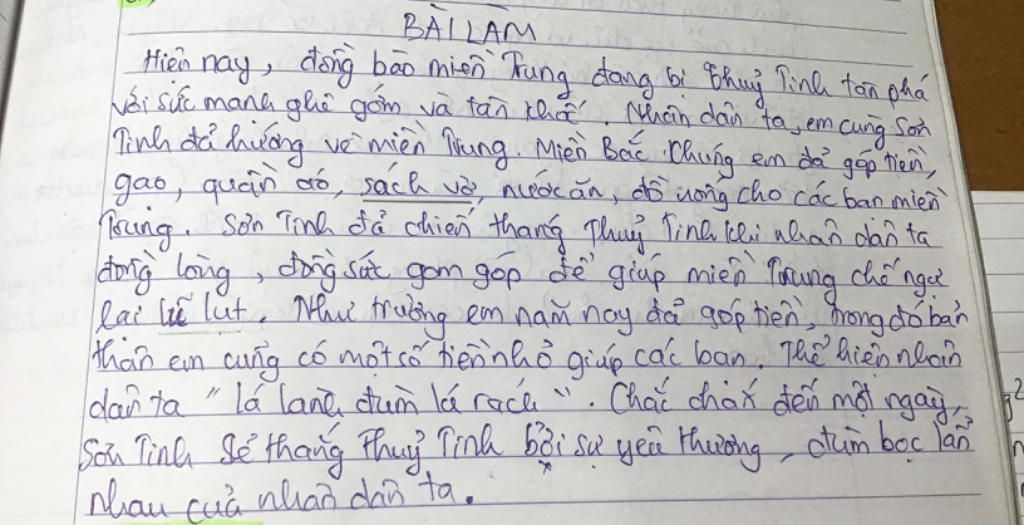 BÀI LÀM
Hiện nay, đồng bào miền Trung đang bị Thuỷ Tinh tàn phá
với sức mạnh ghê gớm và tàn khốc. Nhân dân ta, em cùng Sơn
Tinh đã hướng về miền Trung. Miền Bắc chúng em đã góp tiền,
gạo, quần áo, sách vở, nước ăn, đồ uống cho các bạn miền
Trung. Sơn Tinh đã chiến thắng Thuỷ Tinh khi nhân dân ta
đồng lòng, đồng sức gom góp để giúp miền Trung chế ngự
lại lũ lụt. Như trường em năm nay đã góp tiền, trong đó bản
thân em cũng có một số tiền nhỏ giúp các bạn. Thể hiện nhân
dân ta "lá lành đùm lá rách". Chắc chắn đến một ngày,
Sơn Tinh sẽ thắng Thuỷ Tinh bởi sự yêu thương, đùm bọc lẫn
nhau của nhân dân ta.